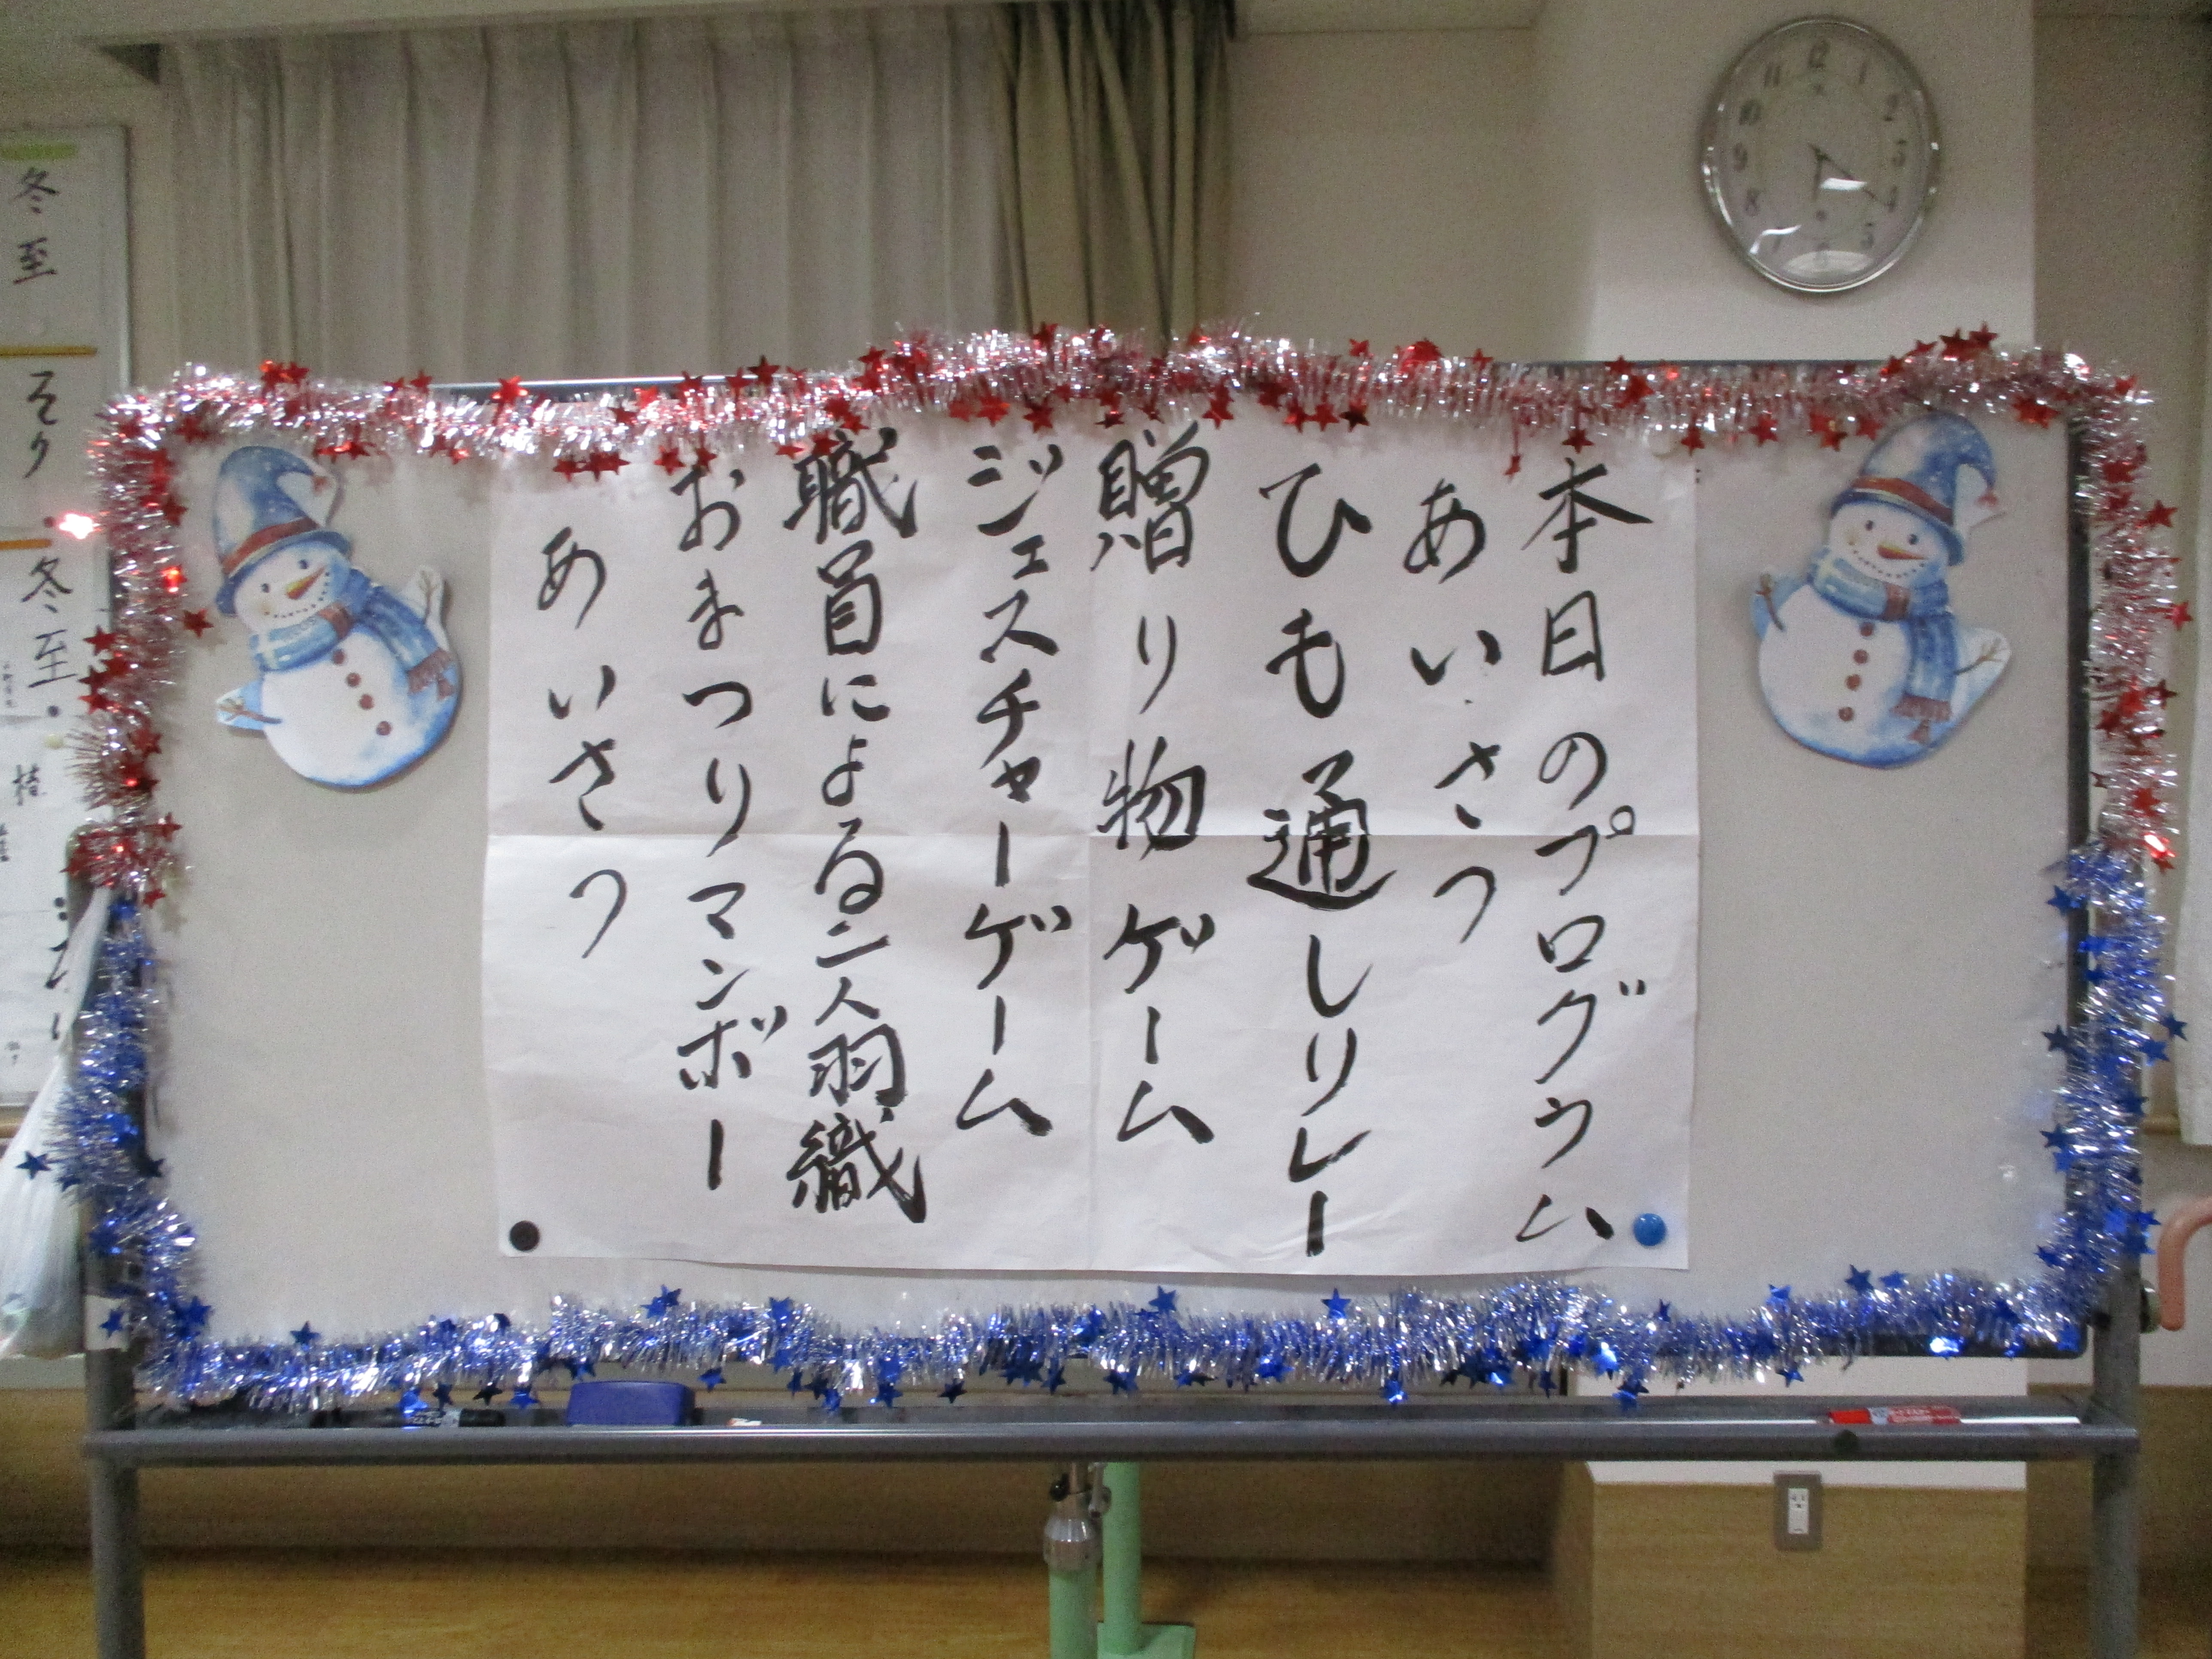 本日のプログラム
あいさつ
ひも通しリレー
贈り物ゲーム
ジェスチャーゲーム
職員による二人羽織
おまつりマンボー
あいさつ
冬至
そり
冬至
12
1
2
3
4
5
6
7
8
9
10
11